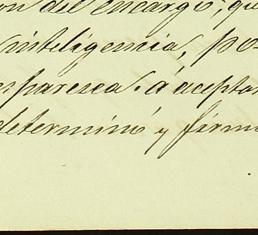 on del encargo, qu
inteligencia, po
mparesca á aceptar
determinó y firmo